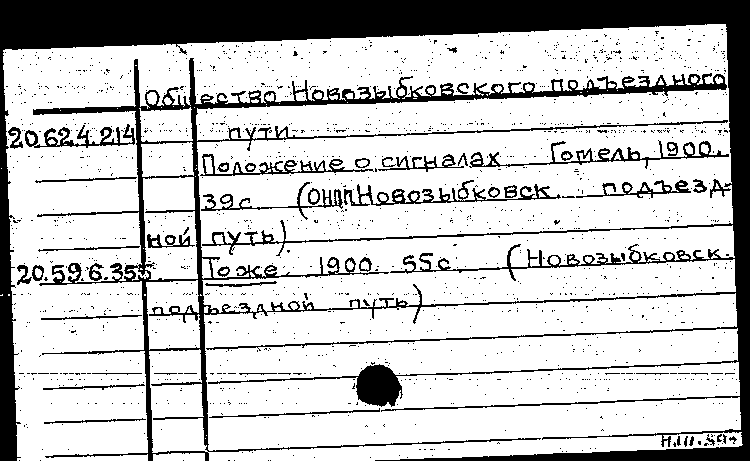 Общество Новозыбковского подъездного
20.62.4.214 пути.
Положение о сигналах Гомель, 1900.
39с (Новозыбковск. подъезд=
ной путь)
20.59.6.355. Тоже 1900. 55с (Новозыбковск.
подъездной путь)